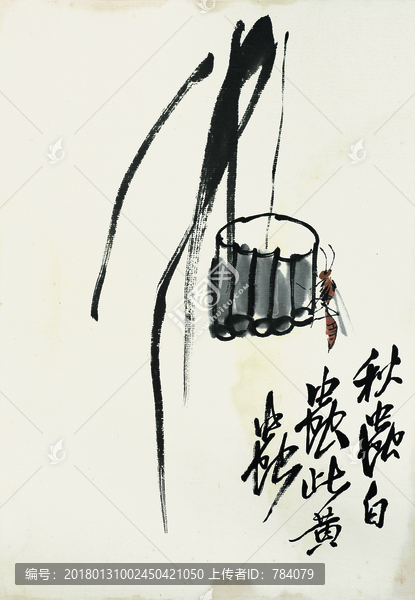 秋蟲白
蟲此黄
蟲
汇图网
编号：20180131002450421050 上传者ID：784079